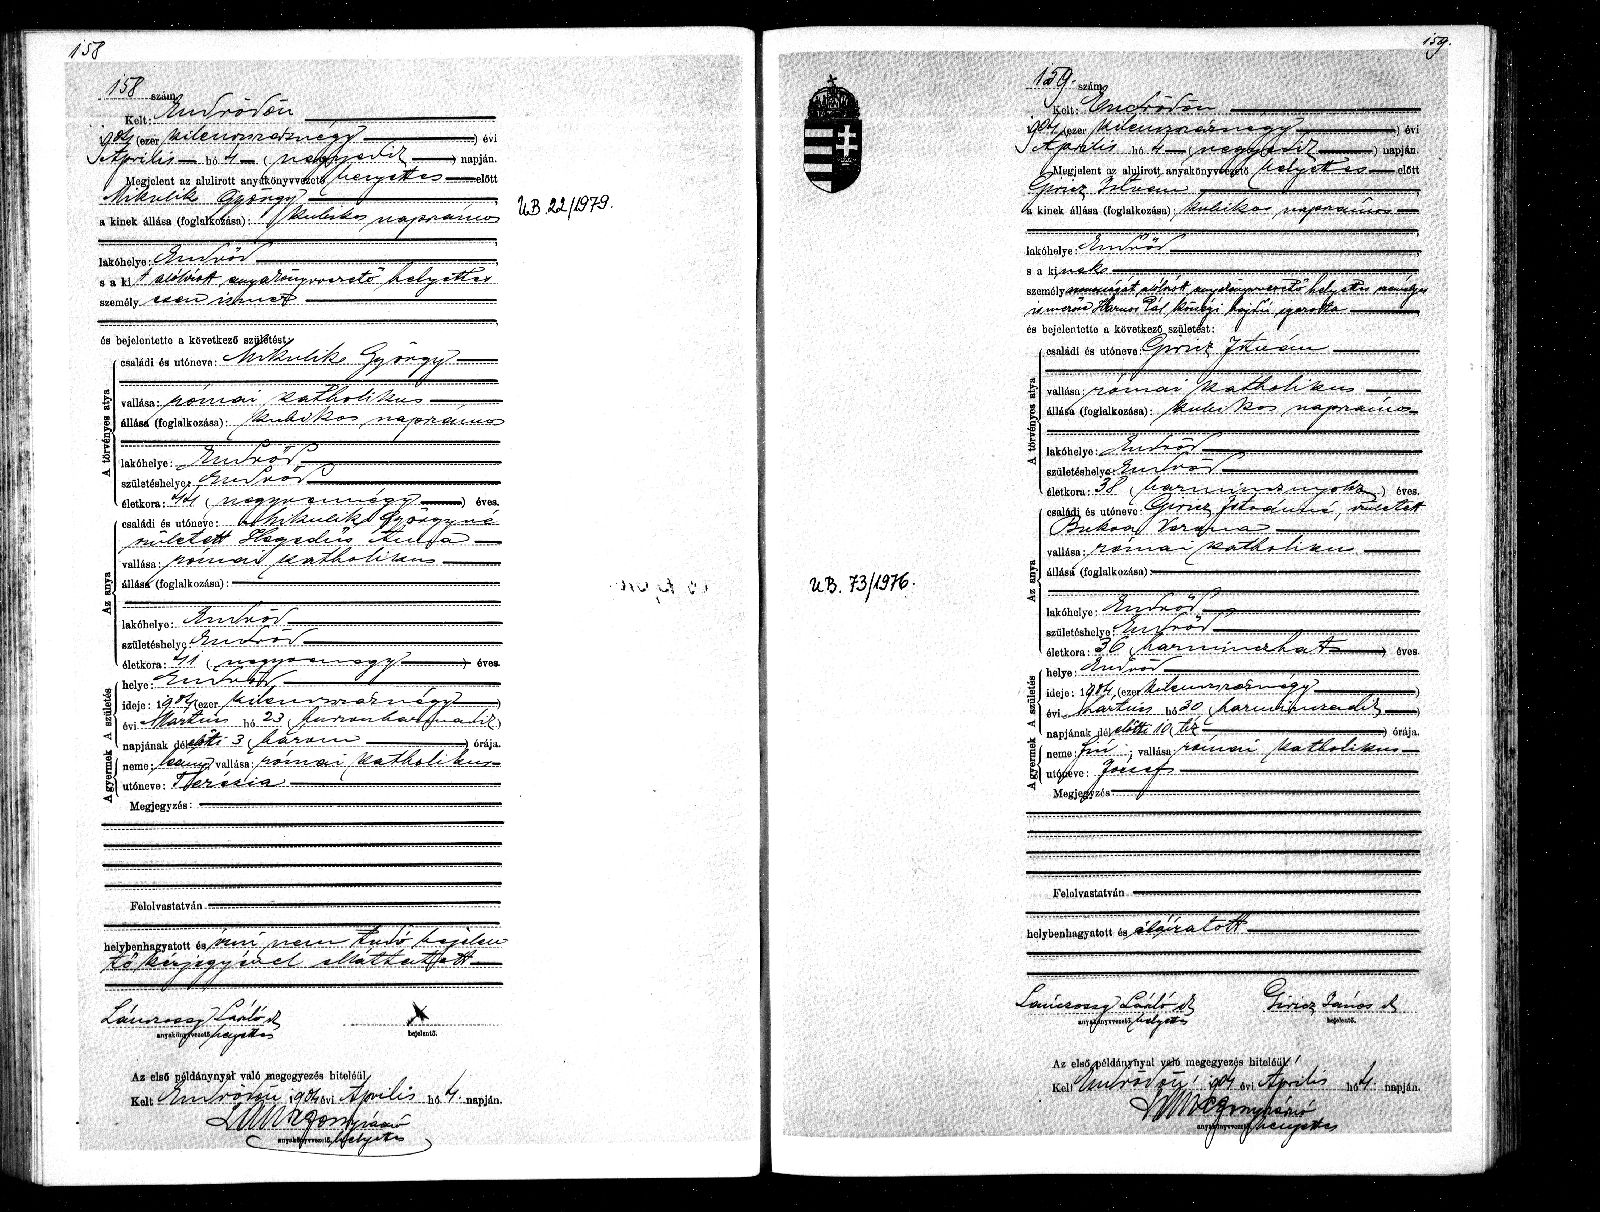 158
158 szám
Kelt: Endrődön
1904 (ezer kilenczszáznégy) évi
Április hó 4 (negyedik) napján.
Megjelent az alulirott anyakönyvvezető helyettes előtt
Mikulik György
a kinek állása (foglalkozása): kubikos napszámos
lakóhelye: Endrőd
s a ki t alólirott anyakönyvvezető helyettes
személyesen ismer
és bejelentette a következő születést:
A törvényes atya
családi és utóneve: Mikulik György
vallása: római katholikus
állása (foglalkozása): kubikos napszámos
lakóhelye: Endrőd
születéshelye: Endrőd
életkora: 44 (negyvennégy) éves.
Az anya
családi és utóneve: Mikulik Györgyné
született Hegedüs Anna
vallása: római katholikus
állása (foglalkozása):
lakóhelye: Endrőd
születéshelye: Endrőd
életkora: 41 (éves.
A születés
helye: Endrőd
ideje: 1904 (ezer kilenczszáznégy)
évi Martius hó 23 (huszonharmadik)
napjának délelőtti 3 (három) órája.
A gyermek
neme: leány vallása: római katholikus
utóneve: Therézia
Megjegyzés:
Felolvastatván
helybenhagyatott és irni nem tudó bejelen
tő kézjegyével elláttatott
Lánczossy László
anyakönyvvezető helyettes
X
bejelentő.
Az első példánynyal való megegyezés hiteléül
Kelt Endrődön 1904 évi Április hó 4 napján.
anyakönyvvezető helyettes
UB. 22/1979.
159.
159. szám
Kelt: Endrődön
1904 (ezer kilenczszáznégy) évi
Április hó 4 (negyedik) napján.
Megjelent az alulirott anyakönyvvezető helyettes előtt
Giricz István
a kinek állása (foglalkozása): kubikos napszámos
lakóhelye: Endrőd
s a kinek
személyazonosságát alólirott anyakönyvvezető helyettes
ismerőse Harnos Pál községi hajdu igazolta
és bejelentette a következő születést:
A törvényes atya
családi és utóneve: Giricz István
vallása: római katholikus
állása (foglalkozása): kubikos napszámos
lakóhelye: Endrőd
születéshelye: Endrőd
életkora: 38 (harmincznyolcz) éves.
Az anya
családi és utóneve: Giricz Istvánné, született
Bukva Verona
vallása: római katholikus
állása (foglalkozása):
lakóhelye: Endrőd
születéshelye: Endrőd
életkora: 36 (harminczhat) éves.
A születés
helye: Endrőd
ideje: 1904 (ezer kilenczszáznégy)
évi Martius hó 30 (harminczadik)
napjának délelőtti 10 (tiz) órája.
A gyermek
neme: fiu; vallása: római katholikus
utóneve: József
Megjegyzés
Felolvastatván
helybenhagyatott és aláiratott
Lánczossy László
anyakönyvvezető helyettes
Giricz János
bejelentő.
Az első példánynyal való megegyezés hiteléül
Kelt Endrődön 1904 évi Április hó 4 napján.
anyakönyvvezető helyettes
UB. 73/1976.